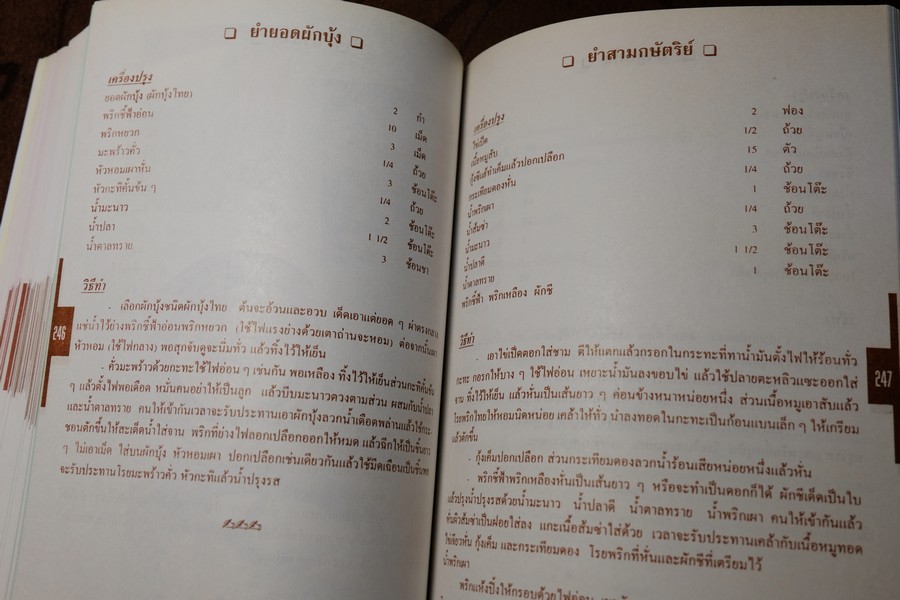 ยำยอดผักบุ้ง
เครื่องปรุง
ยอดผักบุ้ง (ผักบุ้งไทย) 2 กำ
พริกชี้ฟ้าอ่อน 10 เม็ด
พริกหยวก 3 เม็ด
มะพร้าวคั่ว 1/4 ถ้วย
หัวหอมเผาหั่น 3 ช้อนโต๊ะ
หัวกะทิคั้นข้น ๆ 1/4 ถ้วย
น้ำมะนาว 2 ช้อนโต๊ะ
น้ำปลา 1 1/2 ช้อนโต๊ะ
น้ำตาลทราย 3 ช้อนชา
วิธีทำ
. เลือกผักบุ้งชนิดผักบุ้งไทย ต้นจะอ้วนและอวบ เด็ดเอาแต่ยอด ๆ ผ่าตรงกลาง
แช่น้ำไว้ย่างพริกชี้ฟ้าอ่อนพริกหยวก (ใช้ไฟแรงย่างด้วยเตาถ่านจะหอม) ต่อจากนั้นเผา
หัวหอม (ใช้ไฟกลาง) พอสุกจับดูจะนิ่มทั่ว แล้วทิ้งไว้ให้เย็น
. คั่วมะพร้าวด้วยกะทะใช้ไฟอ่อน ๆ เช่นกัน พอเหลือง ทิ้งไว้ให้เย็นส่วนกะทิคั้นข้น
ๆ แล้วตั้งไฟพอเดือด หมั่นคนอย่าให้เป็นลูก แล้วบีบมะนาวตวงตามส่วน ผสมกับน้ำปลา
และน้ำตาลทราย คนให้เข้ากันเวลาจะรับประทานเอาผักบุ้งลวกน้ำเดือดพล่านแล้วใช้กระ
ชอนตักขึ้นให้สะเด็ดน้ำใส่จาน พริกที่ย่างไฟลอกเปลือกออกให้หมด แล้วฉีกให้เป็นชิ้นยาว
ๆ ไม่เอาเม็ด ใส่บนผักบุ้ง หัวหอมเผา ปอกเปลือกเช่นเดียวกันแล้วใช้มีดเฉือนเป็นชิ้นพอ
จะรับประทานโรยมะพร้าวคั่ว หัวกะทิแล้วน้ำปรุงรส
246
ยำสามกษัตริย์
เครื่องปรุง
ไข่เป็ด 2 ฟอง
เนื้อหมูสับ 1/2 ถ้วย
กุ้งชีแฮ้ทำเค็มแล้วปอกเปลือก 15 ตัว
กระเทียมดองหั่น 1/4 ถ้วย
น้ำพริกเผา 1 ช้อนโต๊ะ
น้ำส้มซ่า 1/4 ถ้วย
น้ำมะนาว 3 ช้อนโต๊ะ
น้ำปลาดี 1 1/2 ช้อนโต๊ะ
น้ำตาลทราย 1 ช้อนโต๊ะ
พริกชี้ฟ้า พริกเหลือง ผักชี
วิธีทำ
. เอาไข่เป็ดตอกใส่ชาม ตีให้แตกแล้วกรอกในกระทะที่ทาน้ำมันตั้งไฟให้ร้อนทั่ว
กะทะ กอรกให้บาง ๆ ใช้ไฟอ่อน เหยาะน้ำมันลงขอบไข่ แล้วใช้ปลายตะหลิวแซะออกใส่
จาน ทิ้งไว้ให้เย็น แล้วหั่นเป็นเส้นยาว ๆ ค่อนข้างหนาหน่อยหนึ่ง ส่วนเนื้อหมูเอาสับแล้ว
โรยพริกไทยให้หอมนิดหน่อย เคล้าให้ทั่ว นำลงทอดในกะทะเป็นก้อนแบนเล็ก ๆ ให้เกรียม
แล้วตักขึ้น
. กุ้งเค็มปอกเปลือก ส่วนกระเทียมดองลวกน้ำร้อนเสียหน่อยหนึ่งแล้วหั่น
. พริกชี้ฟ้าพริกเหลืองหั่นเป็นเส้นยาว ๆ หรือจะทำเป็นดอกก็ได้ ผักชีเด็ดเป็นใบ
แล้วปรุงน้ำปรุงรสด้วยน้ำมะนาว น้ำปลาดี น้ำตาลทราย น้ำพริกเผา คนให้เข้ากันแล้ว
หั่นผิวส้มซ่าเป็นฝอยใส่ลง แกะเนื้อส้มซ่าใส่ด้วย เวลาจะรับประทานเคล้ากับเนื้อหมูทอด
ไข่เจียวหั่น กุ้งเค็ม และกระเทียมดอง โรยพริกที่หั่นและผักชีที่เตรียมไว้
น้ำพริกเผา
พริกแห้งปิ้งให้กรอบด้วยไฟอ่อน
247